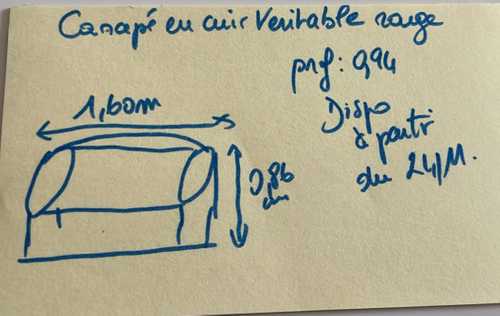 Canapé en cuir Veritable rouge
prf: 0,94
1,60m
Dispo
à partir
du 24/11.
0,86